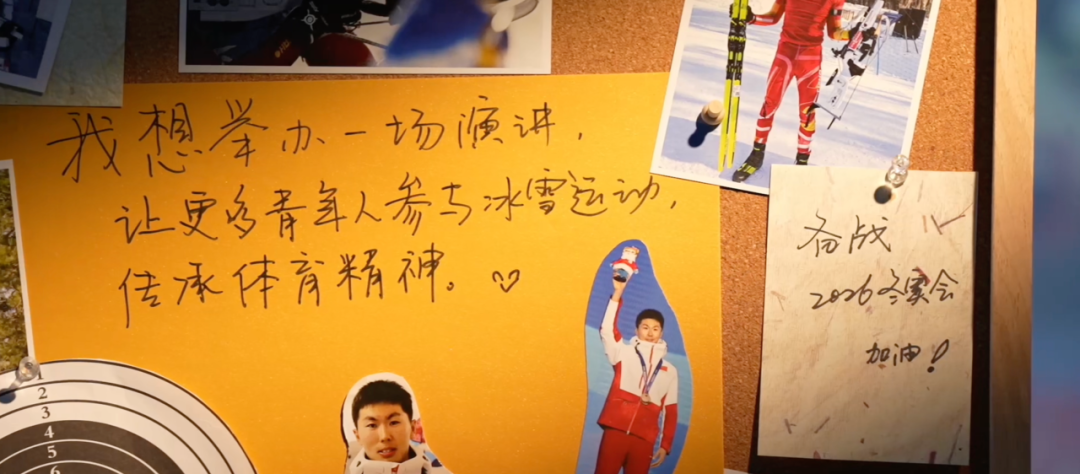 我想举办一场演讲，
让更多青年人参与冰雪运动，
传承体育精神。♡
备战
2026冬奥会
加油！
2
3
4
5
6